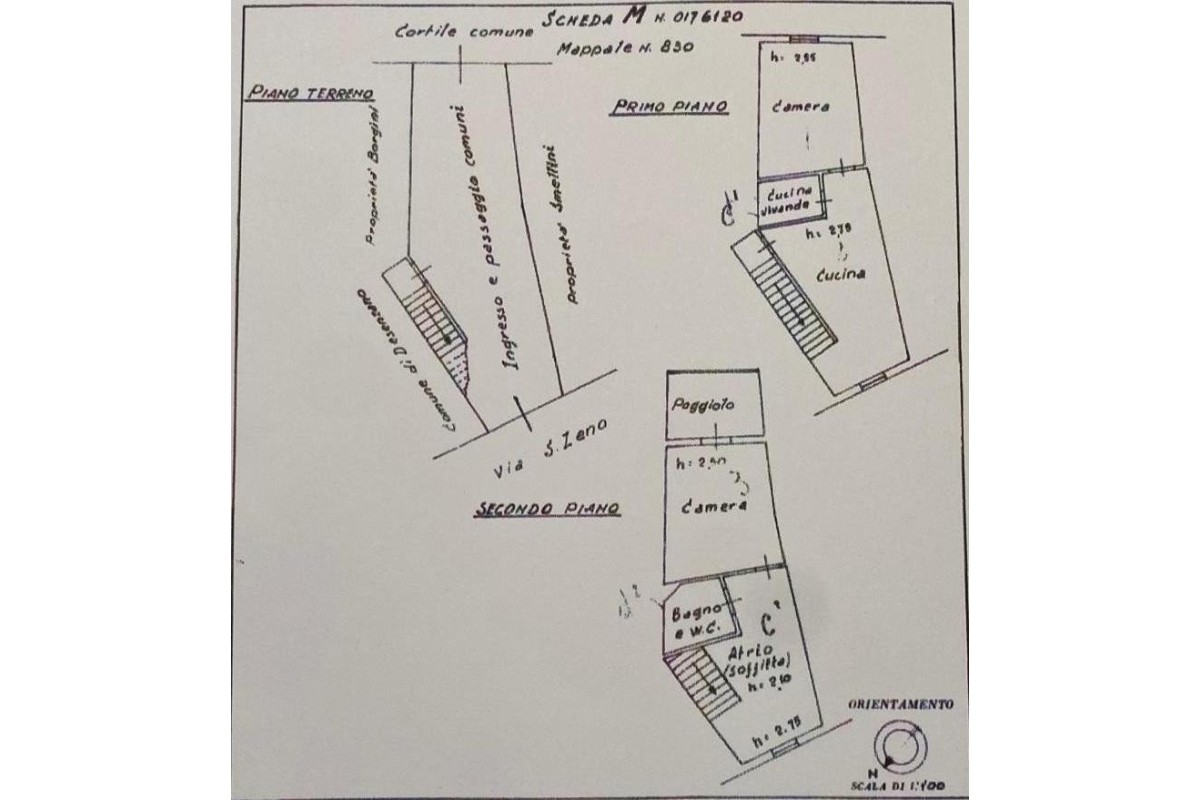 SCHEDA M N. 0176120
Cortile comune
Mappale N. 830
PIANO TERRENO
PRIMO PIANO
Proprietà Borgini
Ingresso e passaggio comuni
Proprietà Smellini
Comune di Desenzano
Via S. Zeno
h: 2,95
Camera
Cucina
vivande
h: 2,75
Cucina
SECONDO PIANO
Poggiolo
h: 2,90
Camera
Bagno
e W.C.
Atrio
(soffitta)
h: 2,10
h: 2.75
ORIENTAMENTO
N
SCALA DI 1:100